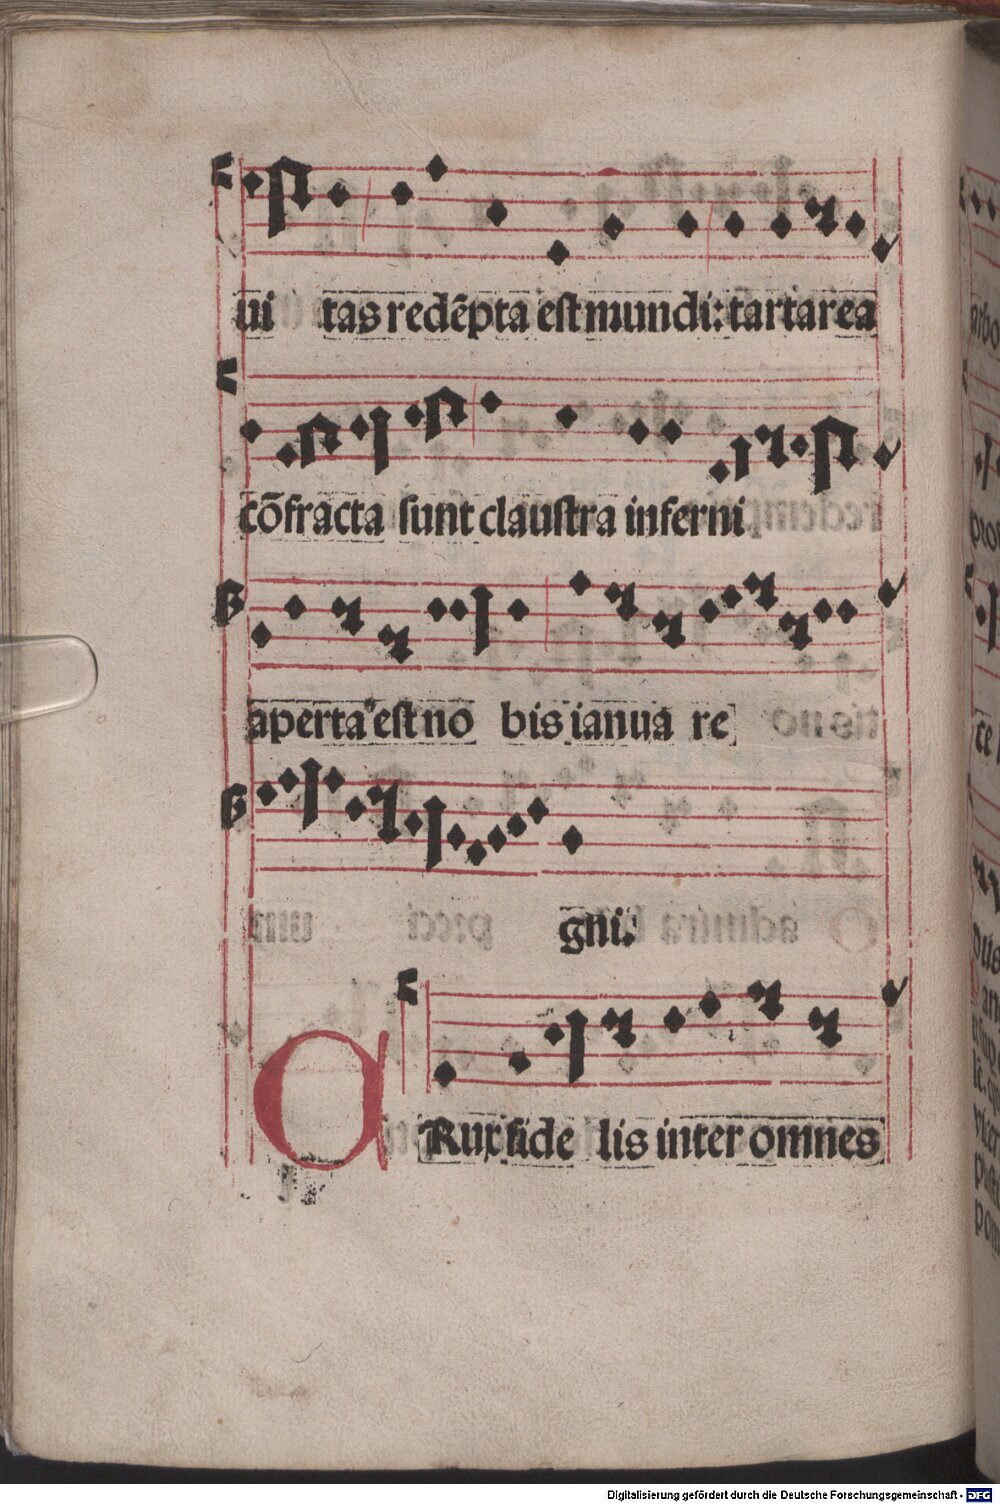 ui tas redēpta est mundi: tartarea
cōfracta sunt claustra inferni
aperta est no bis ianua re
gni.
CRux fide lis inter omnes
Digitalisierung gefördert durch die Deutsche Forschungsgemeinschaft - DFG